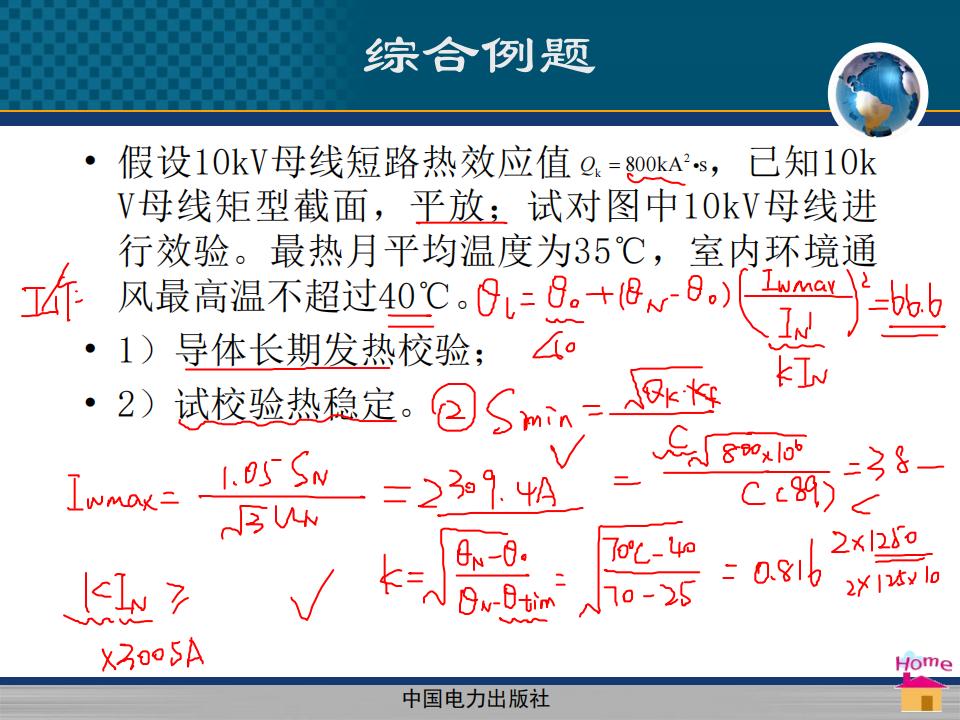 综合例题
• 假设10kV母线短路热效应值 Qk = 800kA²•s，已知10k
V母线矩型截面，平放；试对图中10kV母线进
行效验。最热月平均温度为35℃，室内环境通
风最高温不超过40℃。
工作 θL = θ0 + (θN - θ0) (Iwmax / IN)² = 66.6
40
kIN
• 1）导体长期发热校验；
• 2）试校验热稳定。
② Smin = √Qk·Kf / C
= √800×10⁶ / C (89) = 38
Iwmax = 1.05 SN / √3 UN = 2309.4A
k = √(θN-θ0 / θN-θtim) = √(70℃-40 / 70-25) = 0.816
2×1250
2×125×10
kIN ≥
×3005A
Home
中国电力出版社